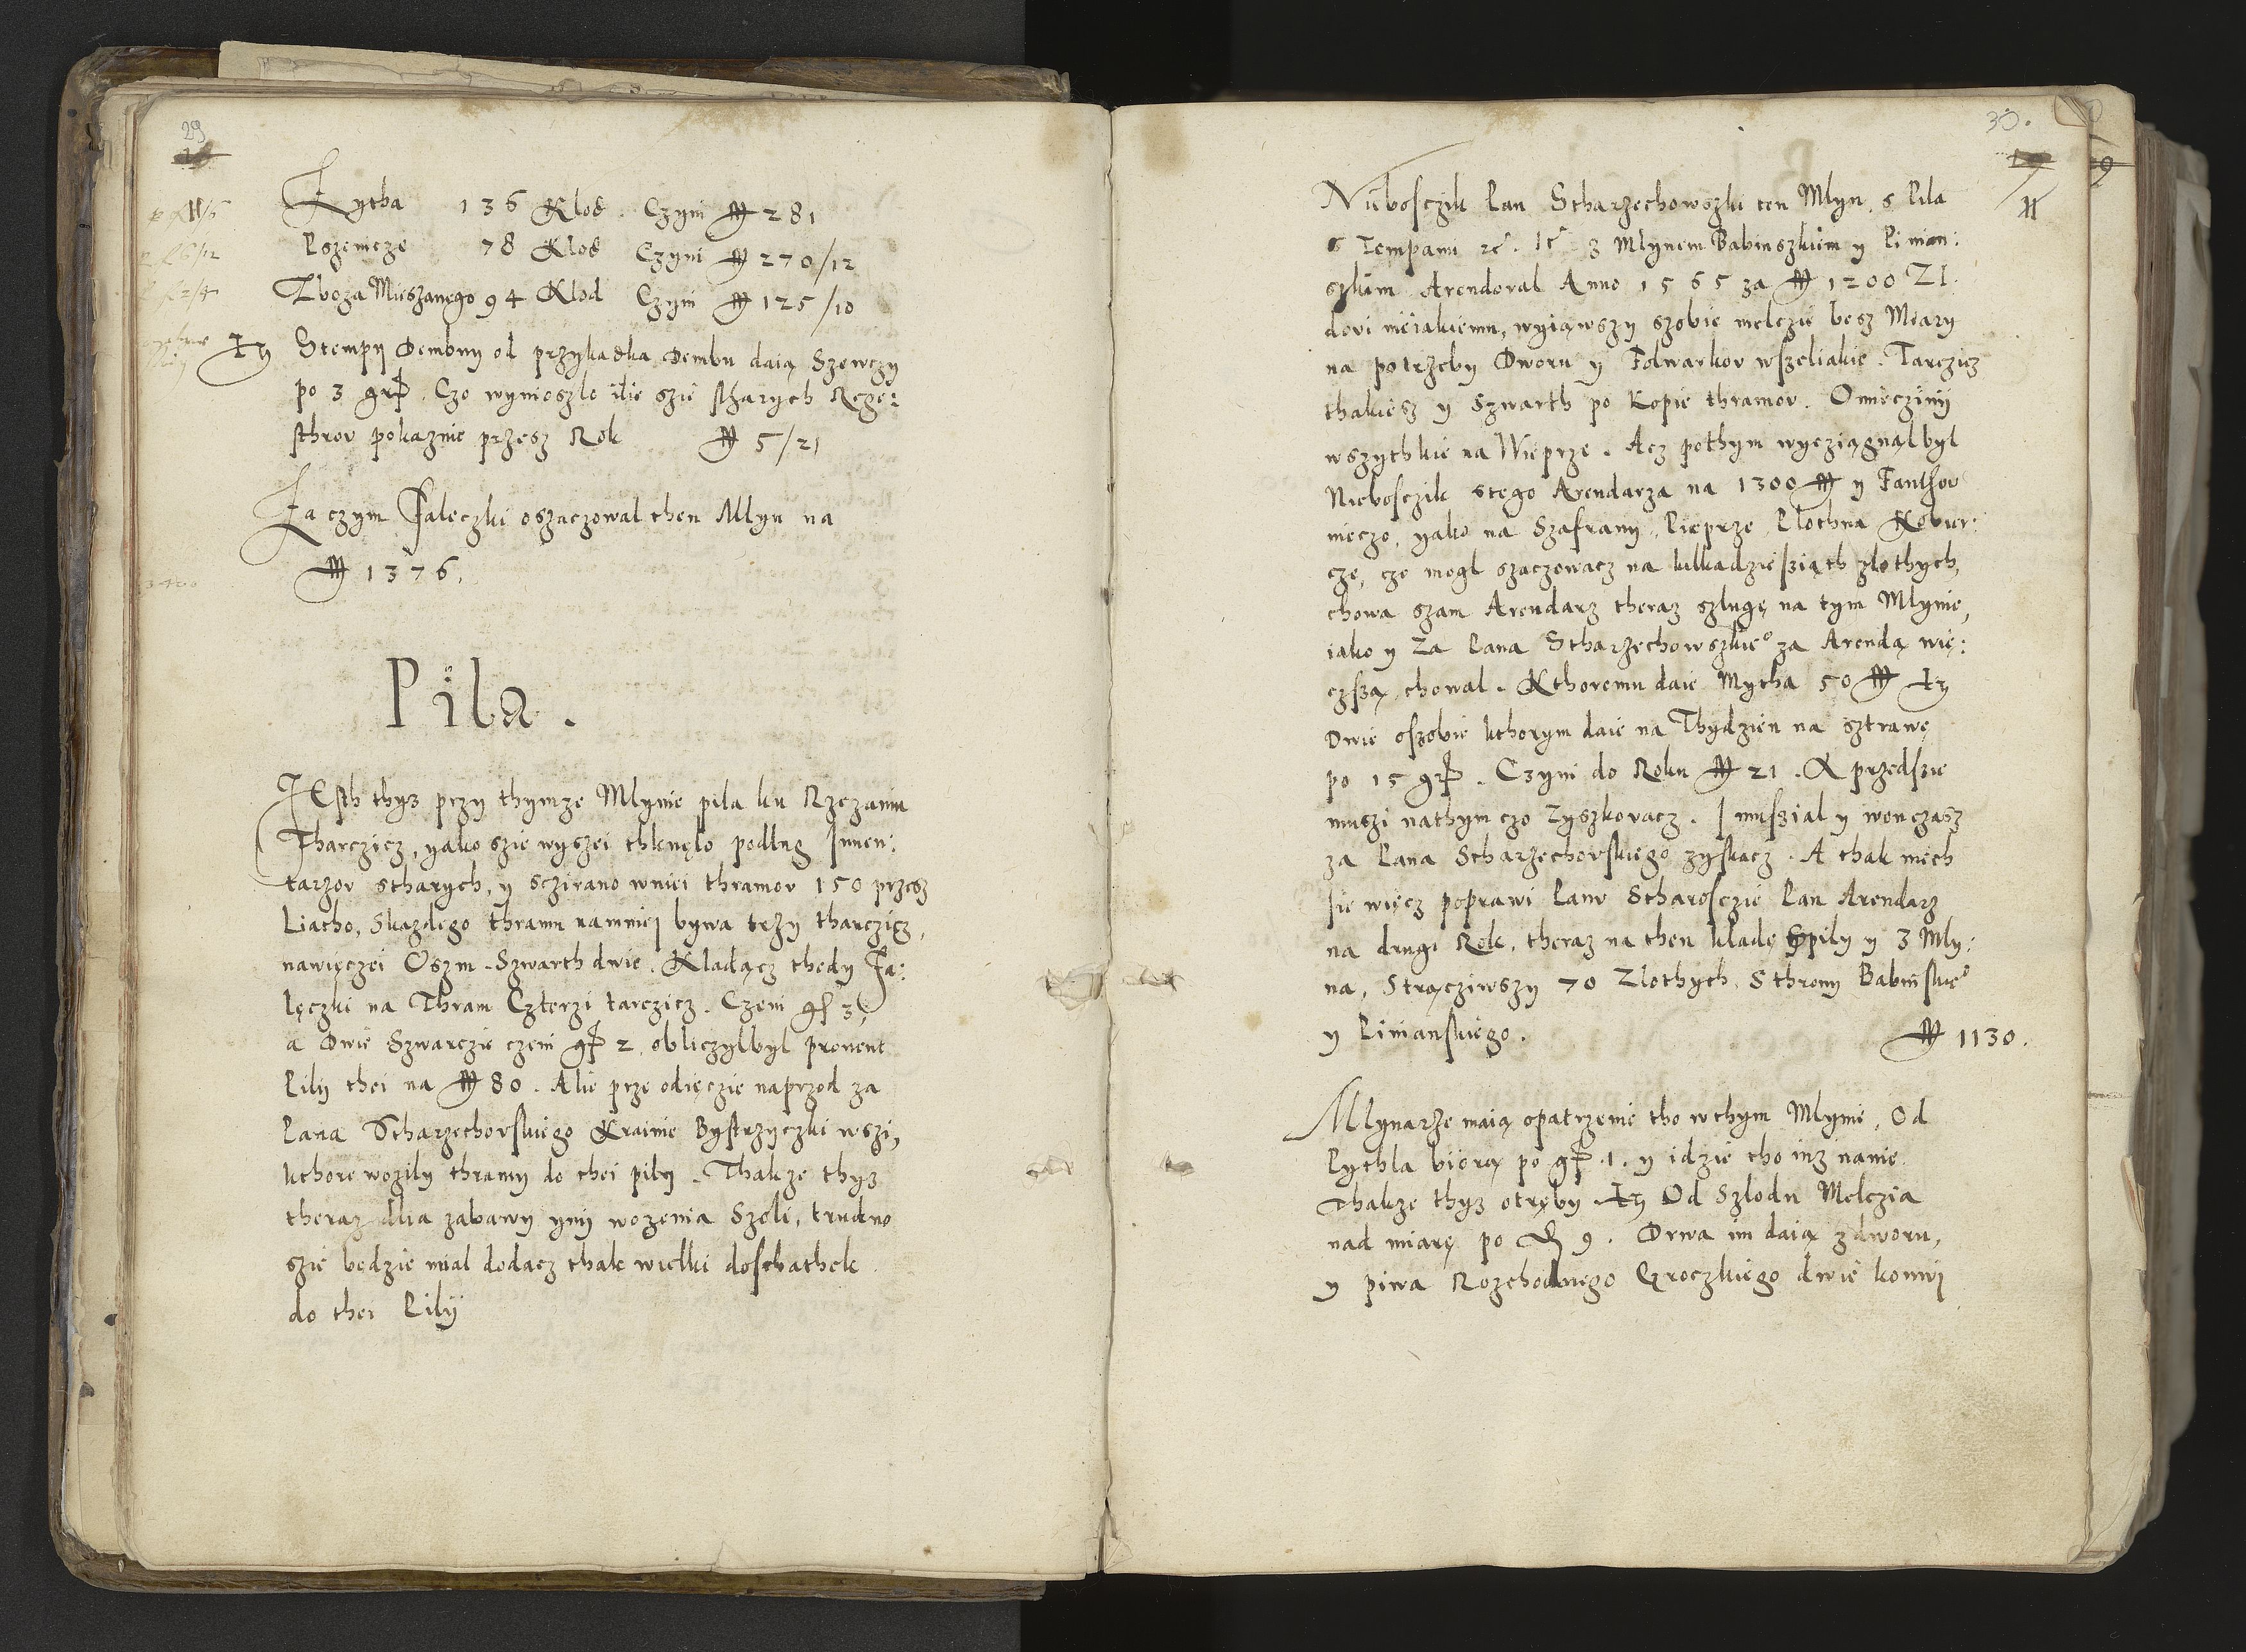 29
Zytha 136 Klod Czyni ₥ 281
Pszenicze 78 Klod Czyni ₥ 270/12
Zboza Mieszanego 94 Klod Czyni ₥ 125/10
Stempy Dembny od przykadka Dembu daią Szewczy
po 3 gr. Czo wynioszlo ilie szie stharych Regie:
sthrov pokaznie przesz Rok ₥ 5/21
Za czym Faleczki oszaczowal then Mlyn na
₥ 1376.
Pila.
JEsth thysz przy thymze Mlynie pila ku Rzezaniu
Tharczicz, yako szie wyszei thknęlo podlug Inwen:
tarzov stharych, y sczirano wniei thramov 150 przesz
Liatho, Skazdego thramu namniej bywa trzy tharczicz,
nawięczei Oszm. Szwarth dwie. Kladącz thedy Fa:
lęczki na Thram Czterzi tarczicz. Czeni gr 3,
a Dwie Szwarczie czeni gr 2, obliczylbyl provent
Pily thei na ₥ 80. Alie prze odięczie naprzod za
Pana Stharzechovskiego Krainie Bystrzyczki wszi,
kthore wozily thramy do thei pily. Thakze thysz
theraz dlia zabawy yny wozenia Szoli, trudno
szie będzie mial dodacz thak wielki dosthathek
do thei Pily
30.
Niebosczik Pan Stharzechowszki ten Mlyn, s Pila
s Tempami z Mlynem Babinszkim y Pinian:
szkim Arendoval Anno 1565 za ₥ 1200 ZI
dovi nieiakiemu, wyiąwszy szobie melczie besz Meary
na potrzeby Dworu y Folwarkov wszeliakie. Tarczicz
thakiesz y Szwarth po Kopie thramov. Omiecziny
wszythkie na Wieprze. Acz pothym wycziągnąl byl
Niebosczik stego Arendarza na 1300 ₥ y Fanthov
nieczo, yako na Szafrany, Pieprze, Plothna Kobier:
cze, czo mogl szaczowacz na kilkadziesziąth zlothych,
chowa szam Arendarz theraz szlugę na tym Mlynie,
iako y Za Pana Stharzechowszkie° za Arendą wię:
czszą chowal. Kthoremu daie Mytha 50 ₥
Dwie oszobie kthorym daie na Thydzien na sztrawę
po 15 gr. Czyni do Roku ₥ 21. A przedszie
muszi nathym czo Zyszkovacz. I musział y wonczasz
za Pana Stharzechovskiego zyskacz. A thak niech
sie więcz poprawi Panv Stharosczie Pan Arendarz
na drugi Rok, theraz na then kladę Spily y 3 Mly:
na, Strącziwszy 70 Zlothych, Sthrony Babinskie°
y Pinianskiego. ₥ 1130.
Mlynarze maią opatrzenie tho wthym Mlynie, Od
Pythla biorą po gr. 1. y idzie tho insz nanie
Thakze thysz otręby. Od Szlodu Melczia
nad miarę po 9. Drwa im daią z dworu,
y piwa Rozchodnego Groczkiego dwie konwj